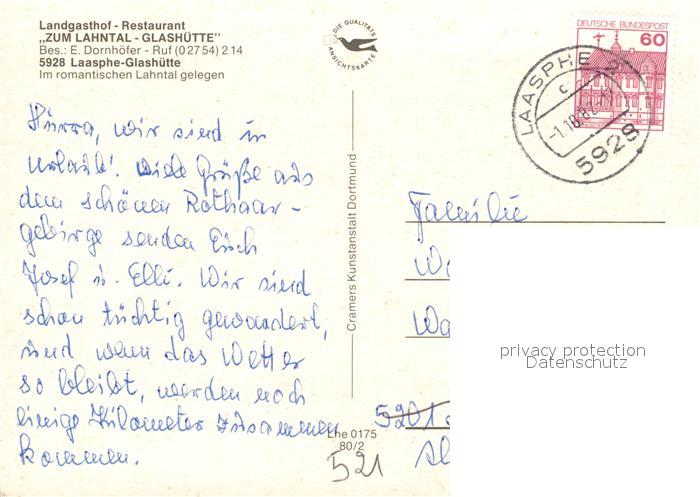 Landgasthof - Restaurant
„ZUM LAHNTAL - GLASHÜTTE"
Bes.: E. Dornhöfer - Ruf (0 27 54) 2 14
5928 Laasphe-Glashütte
Im romantischen Lahntal gelegen
DIE QUALITÄTS
ANSICHTSKARTE
DEUTSCHE BUNDESPOST
60
LAASPHE 2
c
-1.10.82
5928
Hurra, wir sind in
Urlaub! Viele Grüße aus
dem schönen Rothaar-
gebirge senden Euch
Josef u. Elli. Wir sind
schon tüchtig gewandert,
und wenn das Wetter
so bleibt, werden noch
einige Kilometer zusammen
kommen.
Cramers Kunstanstalt Dortmund
Lhe 0175
80/2
521
Familie
W
Wa
5201
privacy protection
Datenschutz